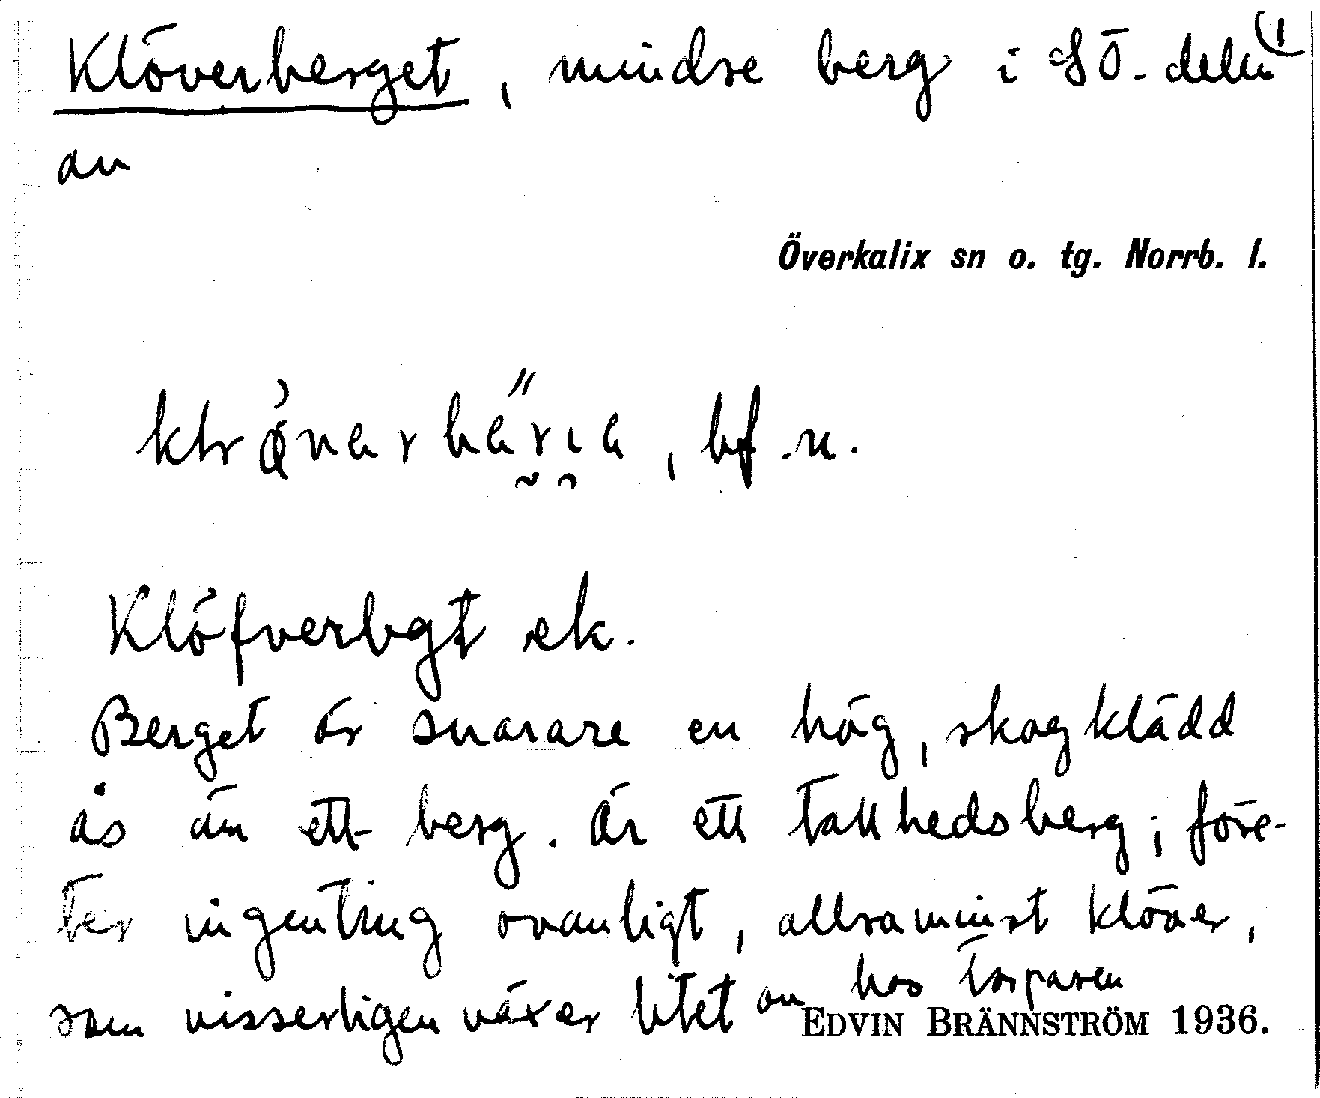 Klöverberget, mindre berg i SÖ. delen (1
av
Överkalix sn o. tg. Norrb. l.
, bf .n.
Klöfverbgt ek.
Berget är snarare en hög, skogklädd
ås än ett berg. Är ett tallhedsberg; före-
ter ingenting ovanligt, allraminst klöver,
som visserligen växer litet av hos torparen
EDVIN BRÄNNSTRÖM 1936.